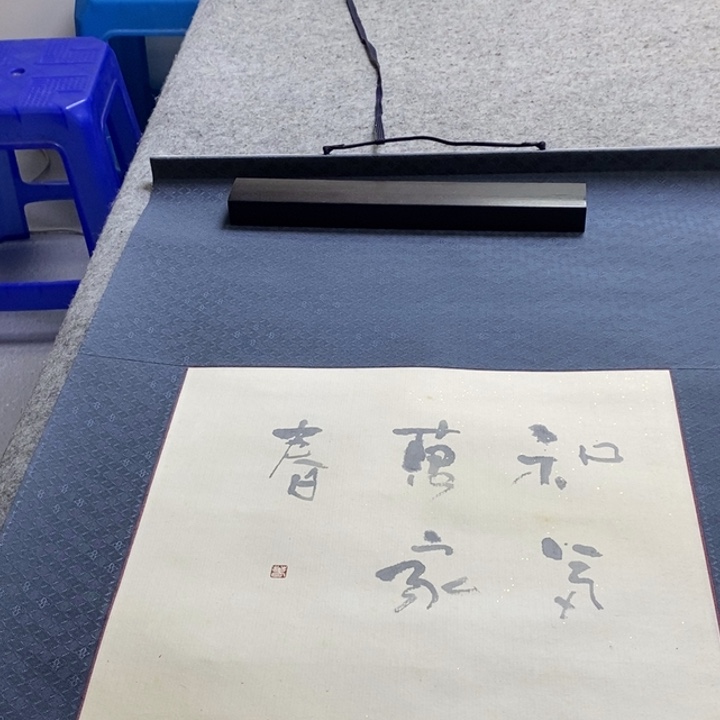 和氣
萬家
春